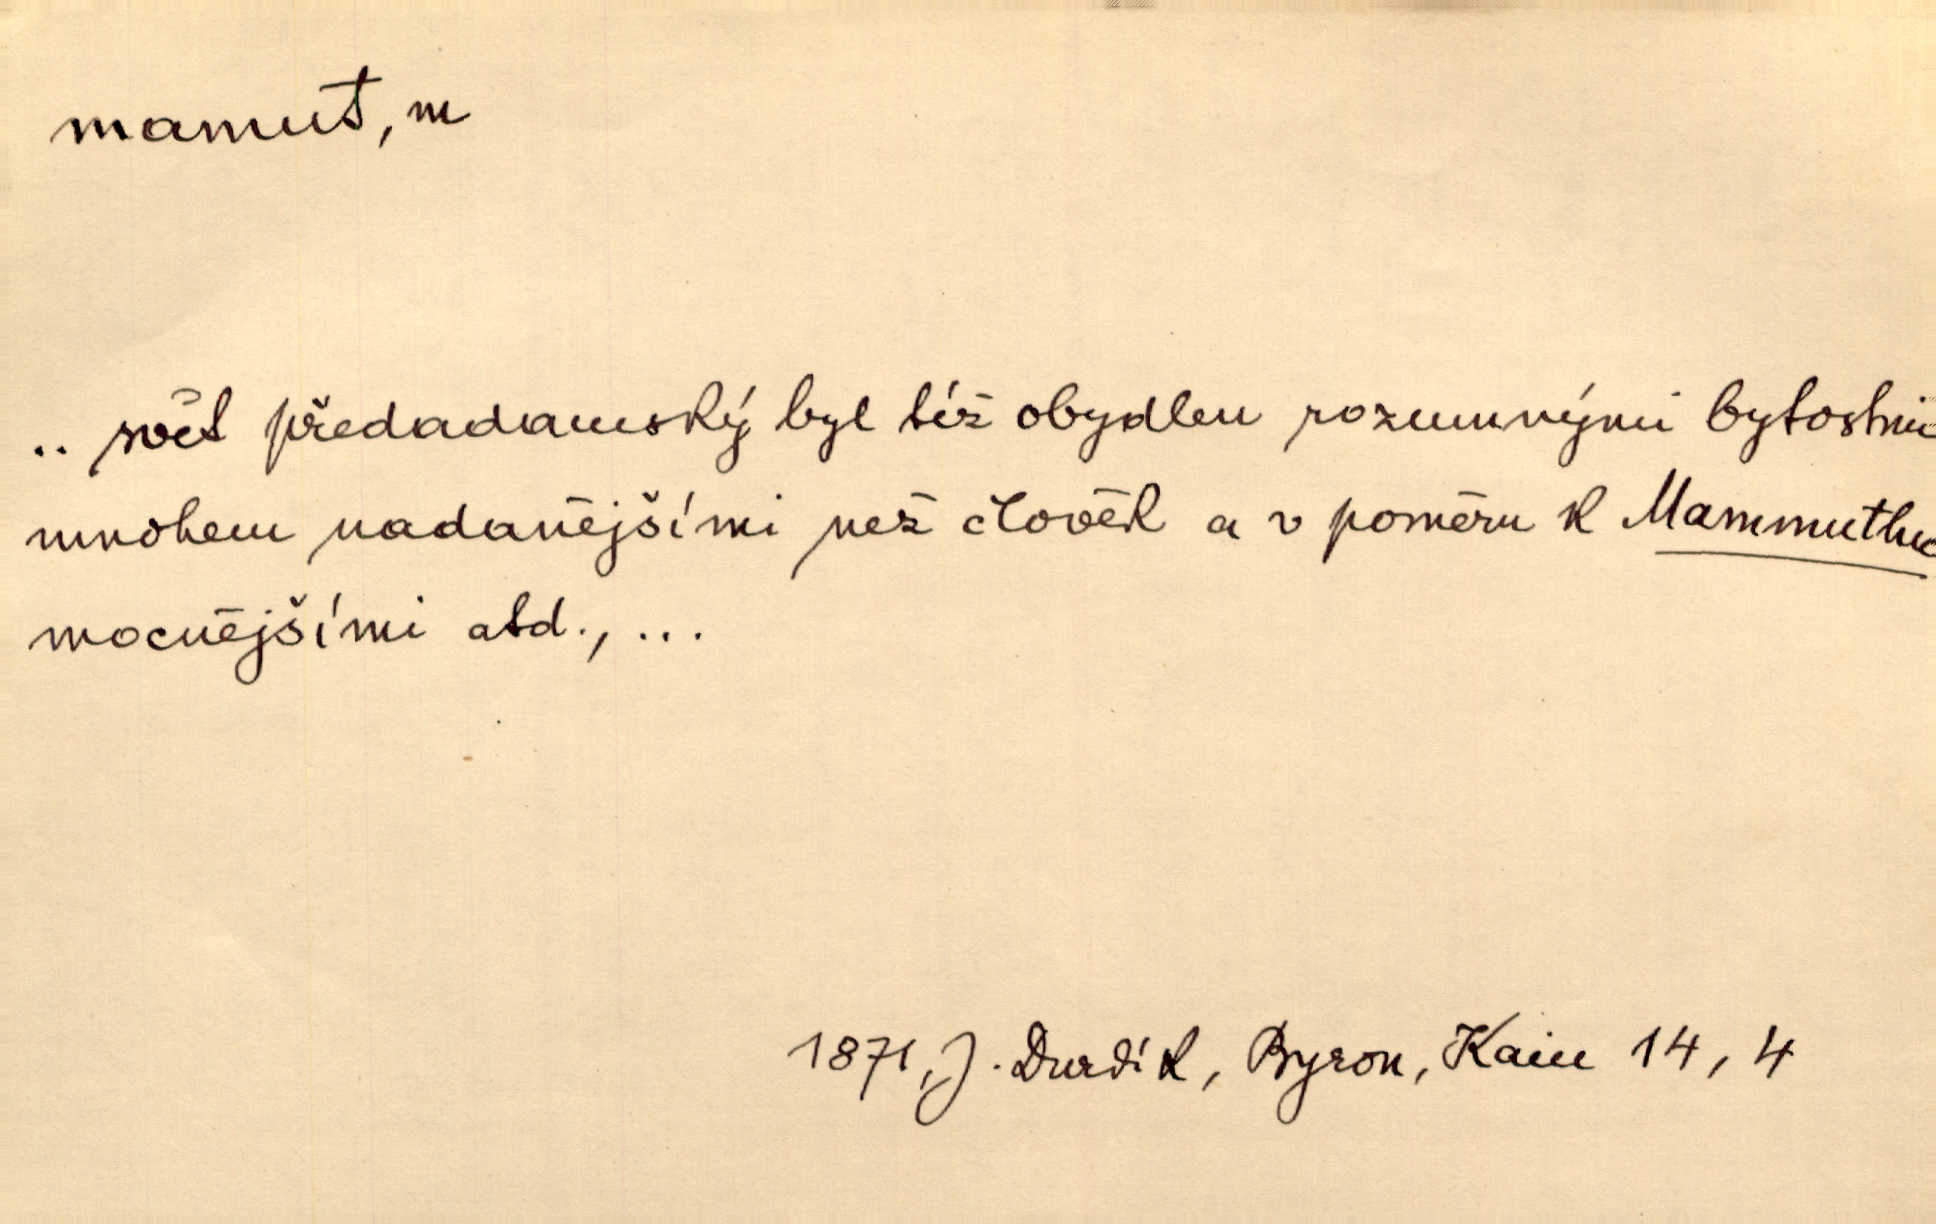 mamut, m
.. svět předadamský byl též obydlen rozumnými bytostmi
mnohem nadanějšími než člověk a v poměru k Mammuthu
mocnějšími atd., ...
1871, J. Durdík, Byron, Kain 14, 4